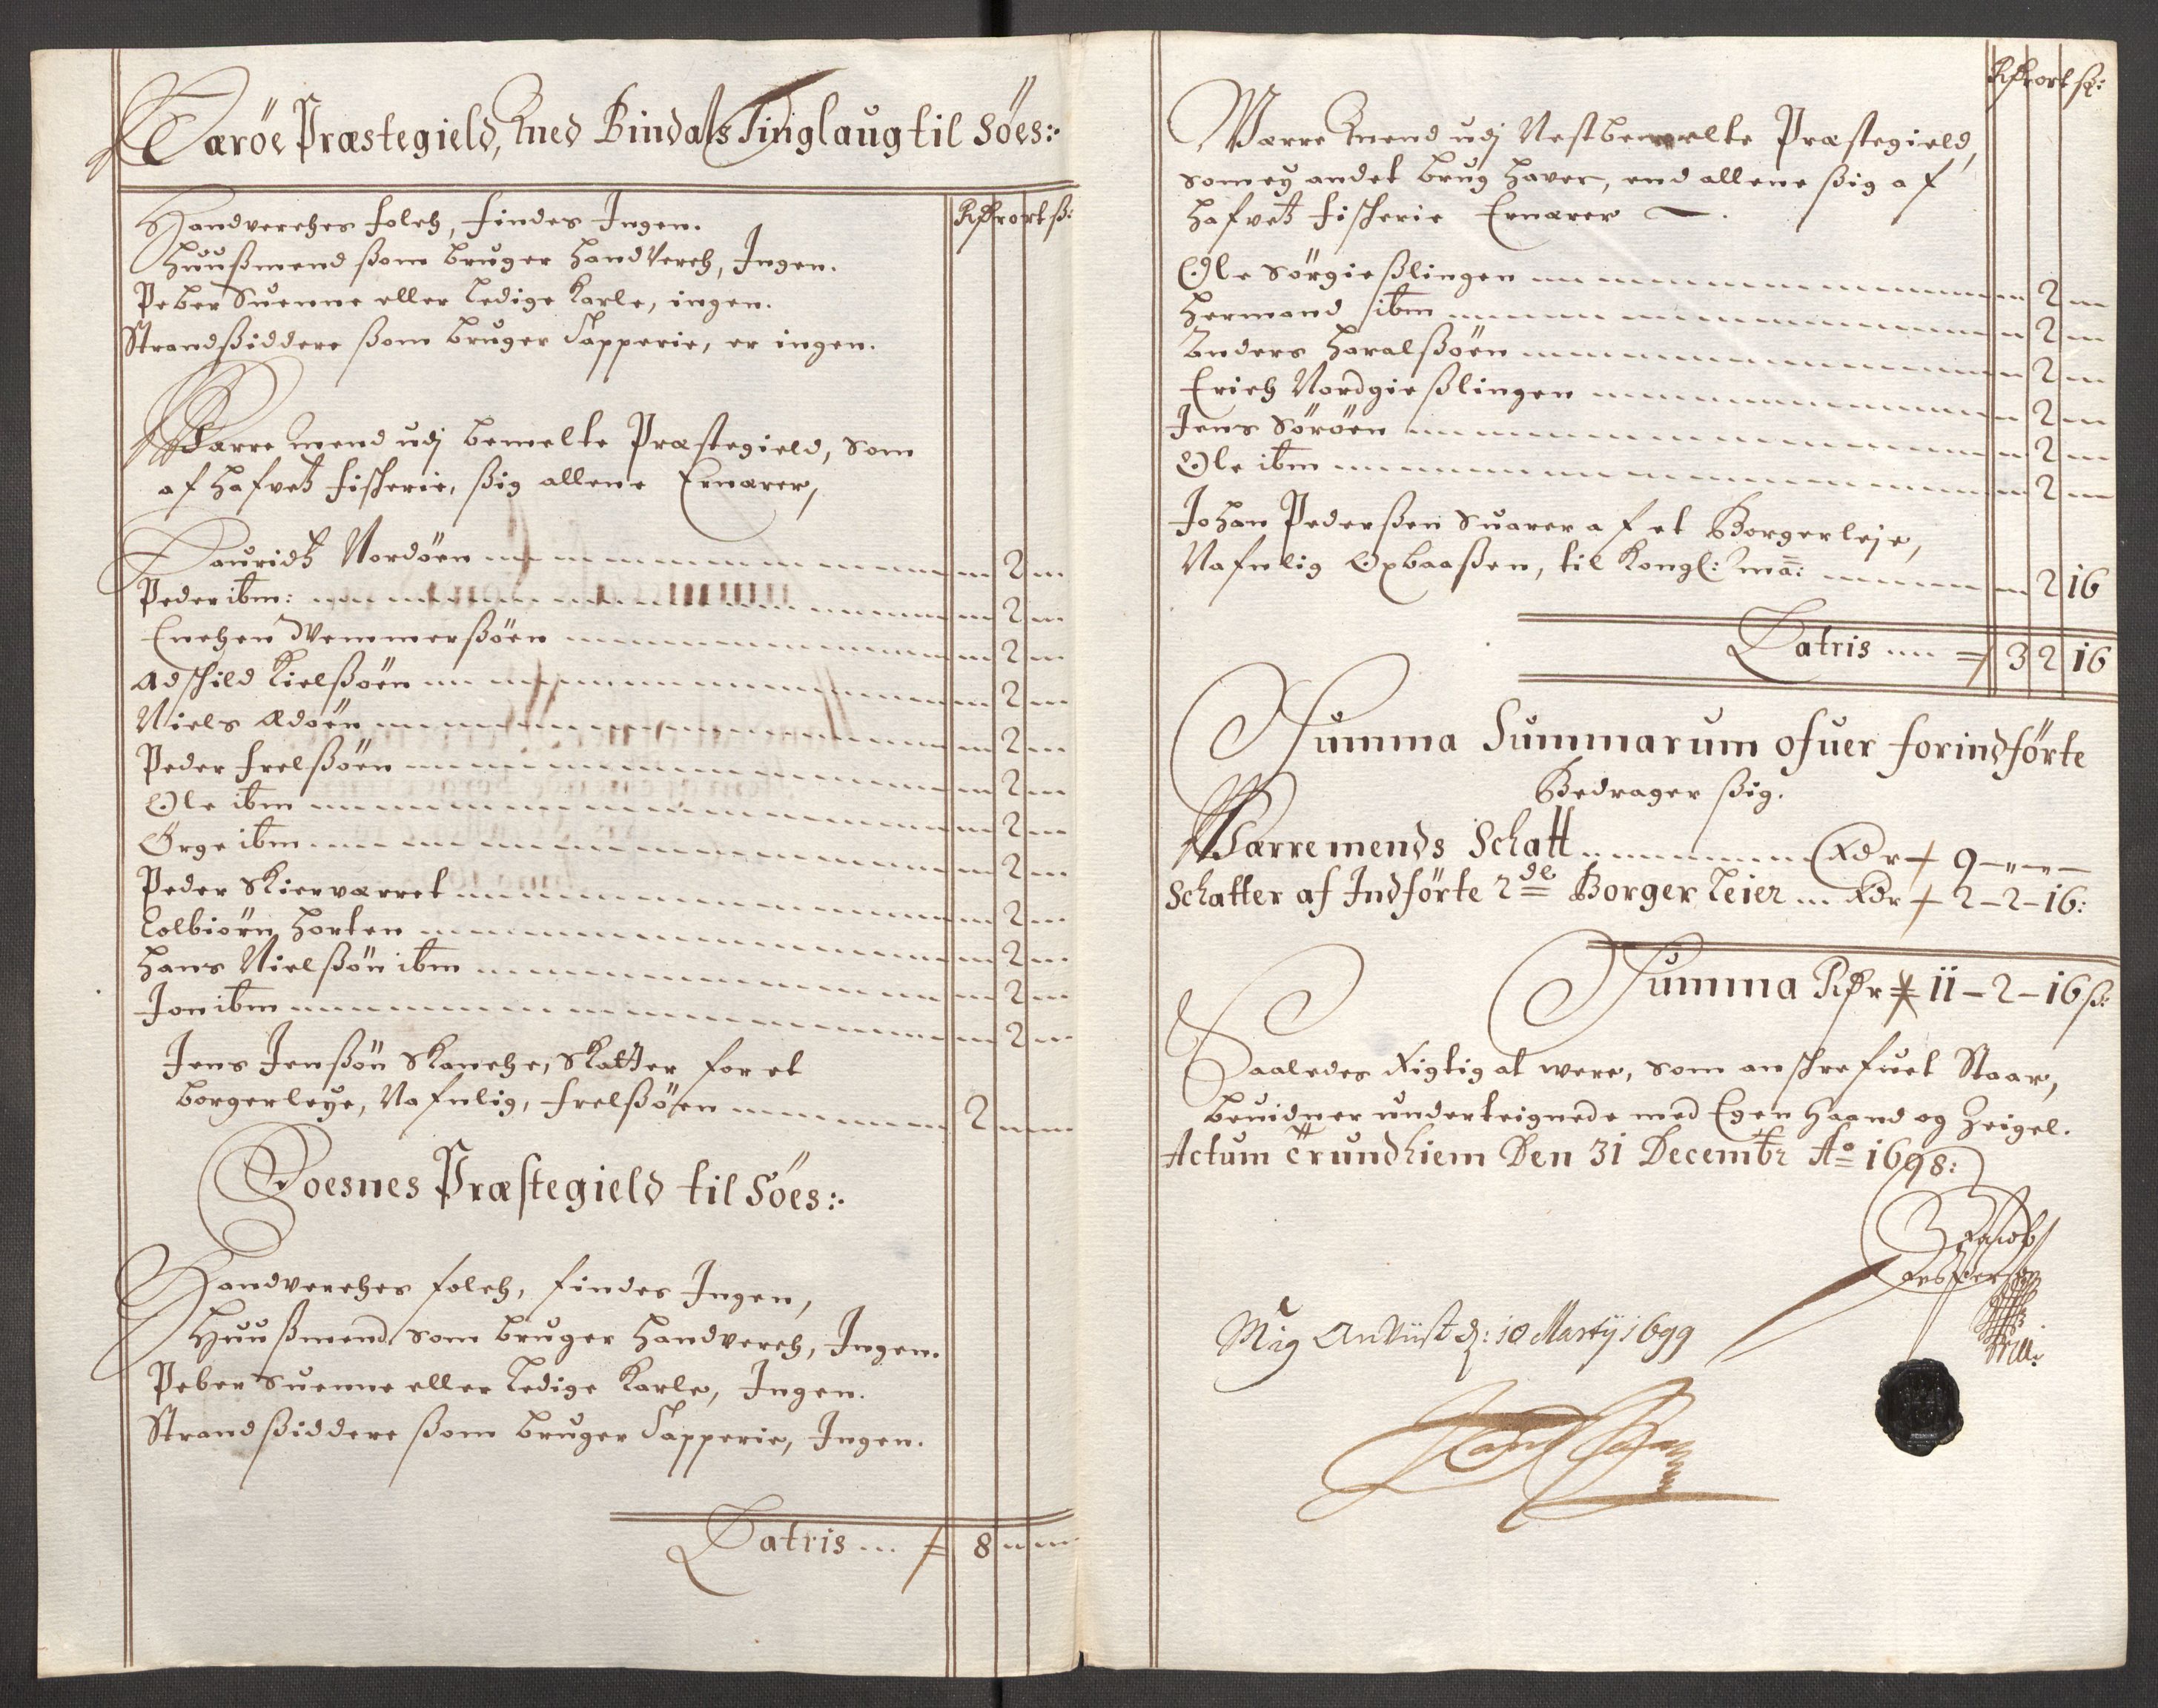 Nærøe Præstegield, med Bindals Tinglaug til Söes:
Rdr ort ß:
Handverches folch, findes Ingen.
Huußmend ßom bruger handverch, Ingen.
Peber Suenne eller ledige Karle, ingen.
Strandßiddere ßom bruger Tapperie, er ingen.
Værre mend udj bemelte Præstegield, som
af hafvetz fischerie, ßig allene Ernærer,
Lauridtz Nordöen 2
Peder ibm: 2
Enchen Vemmerßöen 2
Adschild Kielßöen 2
Niels Ædöen 2
Peder Frelßöen 2
Ole ibm 2
Örge ibm 2
Peder Skierværret 2
Colbiörn Horten 2
Hans Nielßön ibm 2
Jon ibm 2
Jens Jenßön Skanche, Skatter for et
borgerleye, Nafnlig, Frelßöen 2
Foesnes Præstegield til Söes:
Handverches folch, findes Ingen,
Huußmend som bruger handverch, Ingen.
Peber Suenne eller ledige Karle, Ingen.
Strandßiddere ßom bruger Tapperie, Ingen.
Latris 8
Rdr ort ß:
Værre mend udj Nestbemelte Præstegield,
som ey andet brug haver, end allene ßig af
hafvetz fischerie Ernærer
Ole Sörgießlingen 2
Hermand ibm 2
Anders Haralßöen 2
Erich Nordgießlingen 2
Jens Söröen 2
Ole ibm 2
Johan Pederßen Suarer af et Borgerleje,
Nafnlig Oxbaaßen, til Kongl: Ma: 2 16
Latris 3 2 16
Summa Summarum ofuer forindförte
Bedrager ßig.
Værremends Schatt Rdr 9
Schatter af Indförte 2de Borger Leier Rdr 2-2-16:
Summa Rdr 11-2-16 ß:
Saaledes Rigtig at were, som anschrefuet Staar,
beuidner underteignede med Egen haand og Zeigel.
Actum Trundhiem Den 31 Decembr Ao 1698:
Jacob
Jespersen
Mig Anviist d: 10 Martij 1699